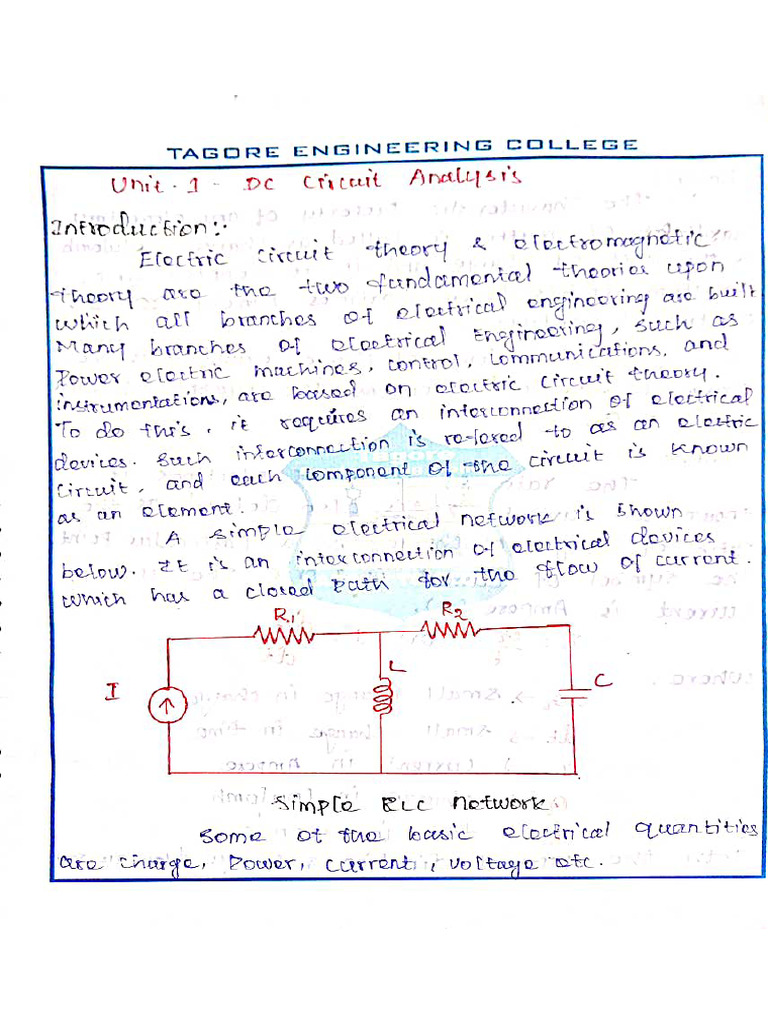 TAGORE ENGINEERING COLLEGE
Unit - 1 - DC Circuit Analysis
Introduction:-
Electric circuit theory & electromagnetic
theory are the two fundamental theories upon
which all branches of electrical engineering are built
Many branches of electrical Engineering, such as
Power electric machines, control, communications, and
instrumentations, are based on electric circuit theory.
To do this, it requires an interconnection of electrical
devices. Such interconnection is refered to as an electric
circuit, and each component of the circuit is known
as an element.
A simple electrical network is shown
below. It is an interconnection of electrical devices
which has a closed path for the flow of current.
R1
R2
L
I
C
Simple RLC network.
Some of the basic electrical quantities
are charge, Power, current, voltage etc.